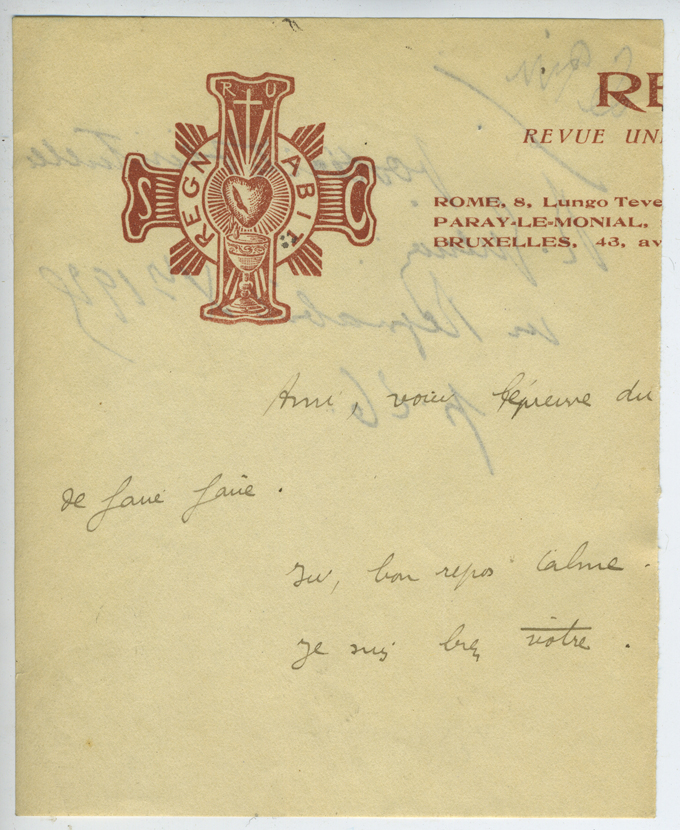 RE
REVUE UNI
ROME, 8, Lungo Teve
PARAY-LE-MONIAL,
BRUXELLES, 43, av
R U
REGNABIT
S C
Ami, voici l'épreuve du
de faire faire.
Ici, bon repos calme.
Je suis bien votre.